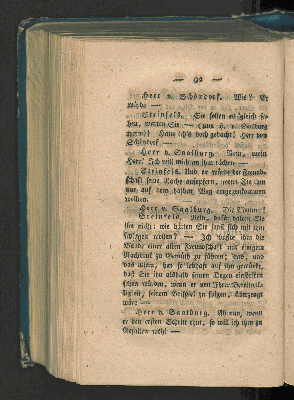 — 92 —
Herr v. Schöndorf. Wie? Er
würde —
Steinfels. Sie sollen es gleich se-
hen, warten Sie — (zum H. v. Saalburg
Hatte ich's doch gedacht! Herr von
Schöndorf —
Herr v. Saalburg. Nein, mein
Herr! Ich will mich an ihm rächen —
Steinfels. Und er würde der Freund-
schaft seine Rache aufopfern, wenn Sie ihm
nur auf dem halben Weg entgegenkommen
wollten.
Herr v. Saalburg. Die
Steinfels. Nein, dafür halten Sie
ihn nicht; wie hätten Sie sonst sich mit dem
wollen? — Ich mußte ihm die
Würde einer alten Freundschaft mit einigem
Nachdruck zu Gemüth zu führen; das, und
das allein, hat so lebhaft auf ihn gewürkt,
daß Sie ihn alsbald seinen Degen einstecken
sehen würden, wenn er von Ihrer Bereitwil-
ligkeit, seinem Beispiel zu folgen, überzeugt
wäre —
Herr v. Saalburg. Ah nun, wenn
er den ersten Schritt thut, so will ich ihm zu
Gefallen